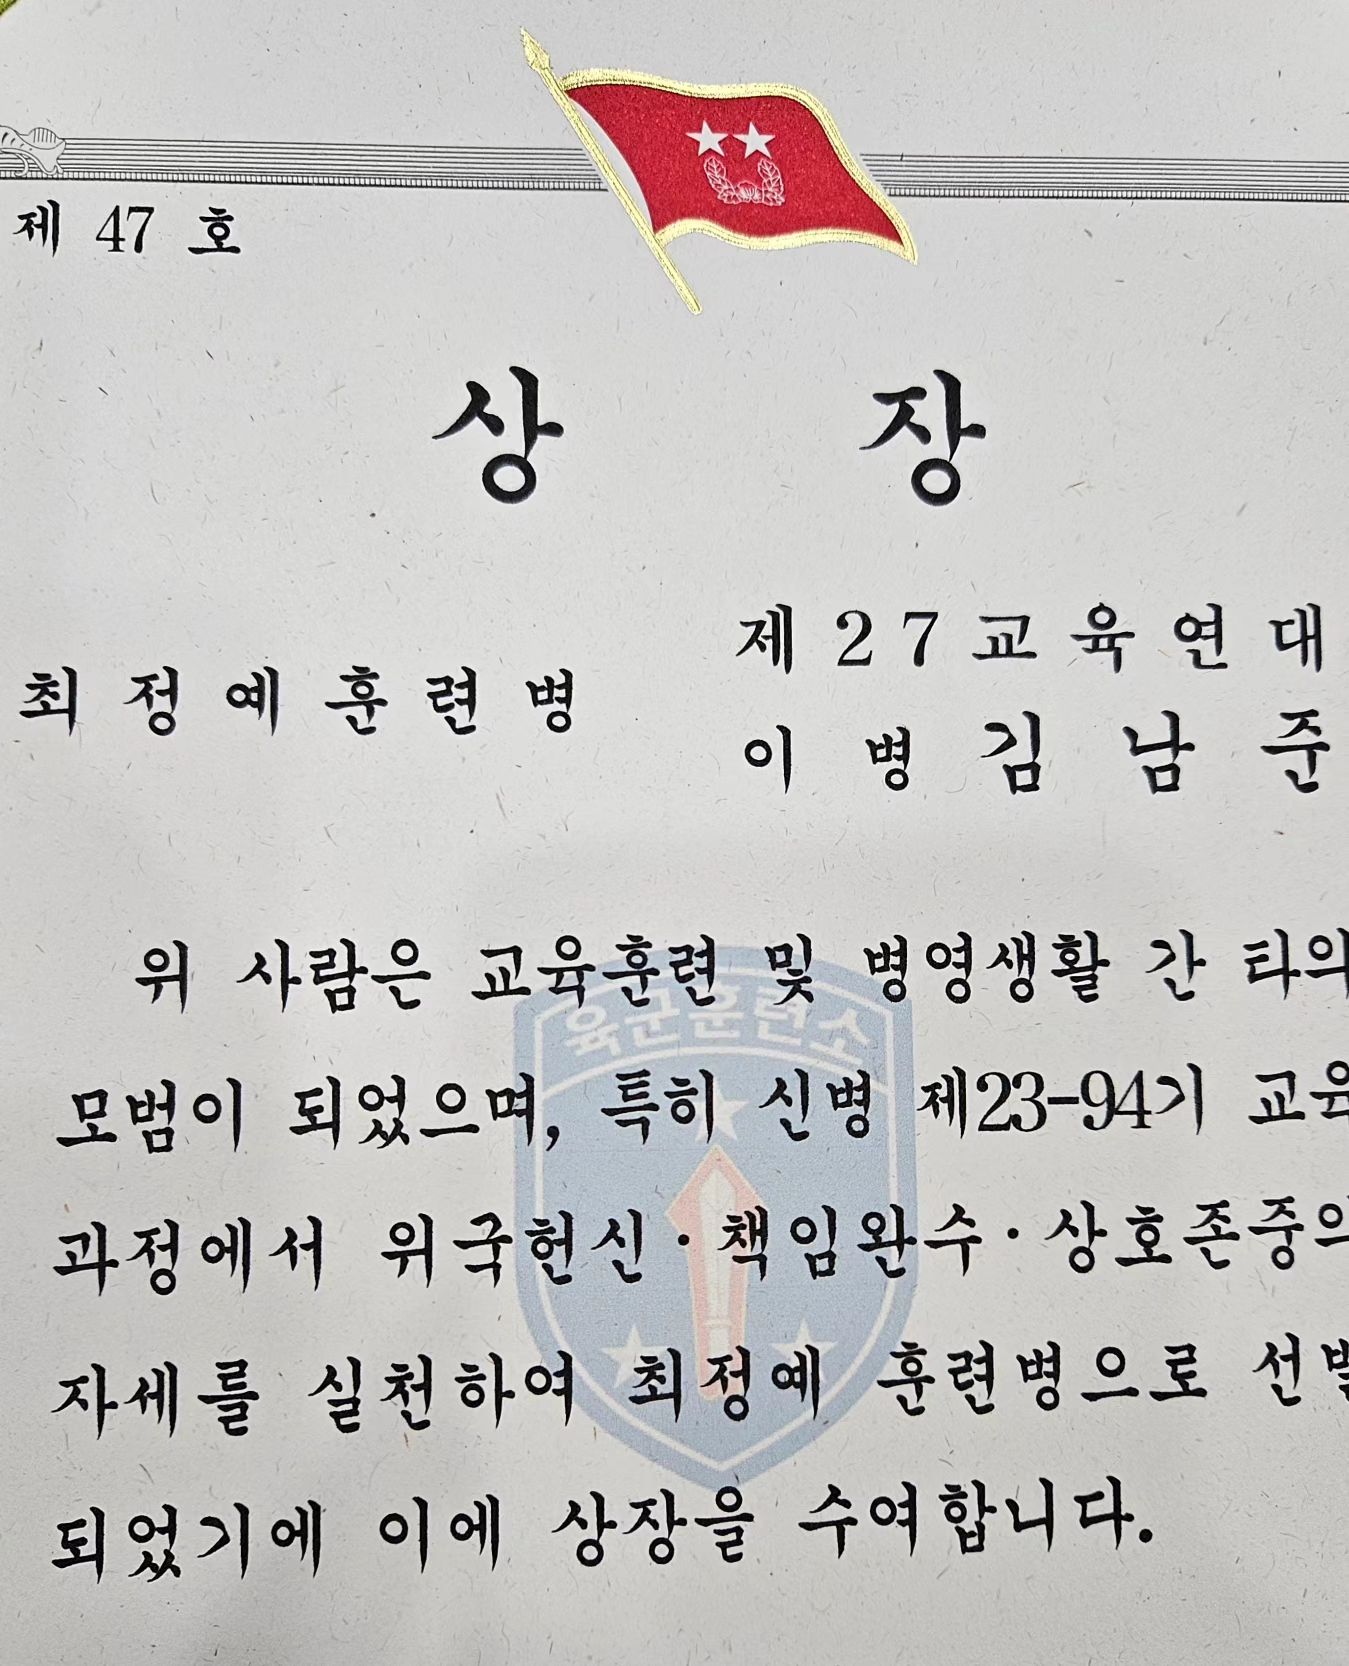 제 47 호
상 장
최정예훈련병
제27교육연대
이 병 김 남 준
위 사람은 교육훈련 및 병영생활 간 타의
육군훈련소
모범이 되었으며, 특히 신병 제23-94기 교육
과정에서 위국헌신·책임완수·상호존중의
자세를 실천하여 최정예 훈련병으로 선발
되었기에 이에 상장을 수여합니다.